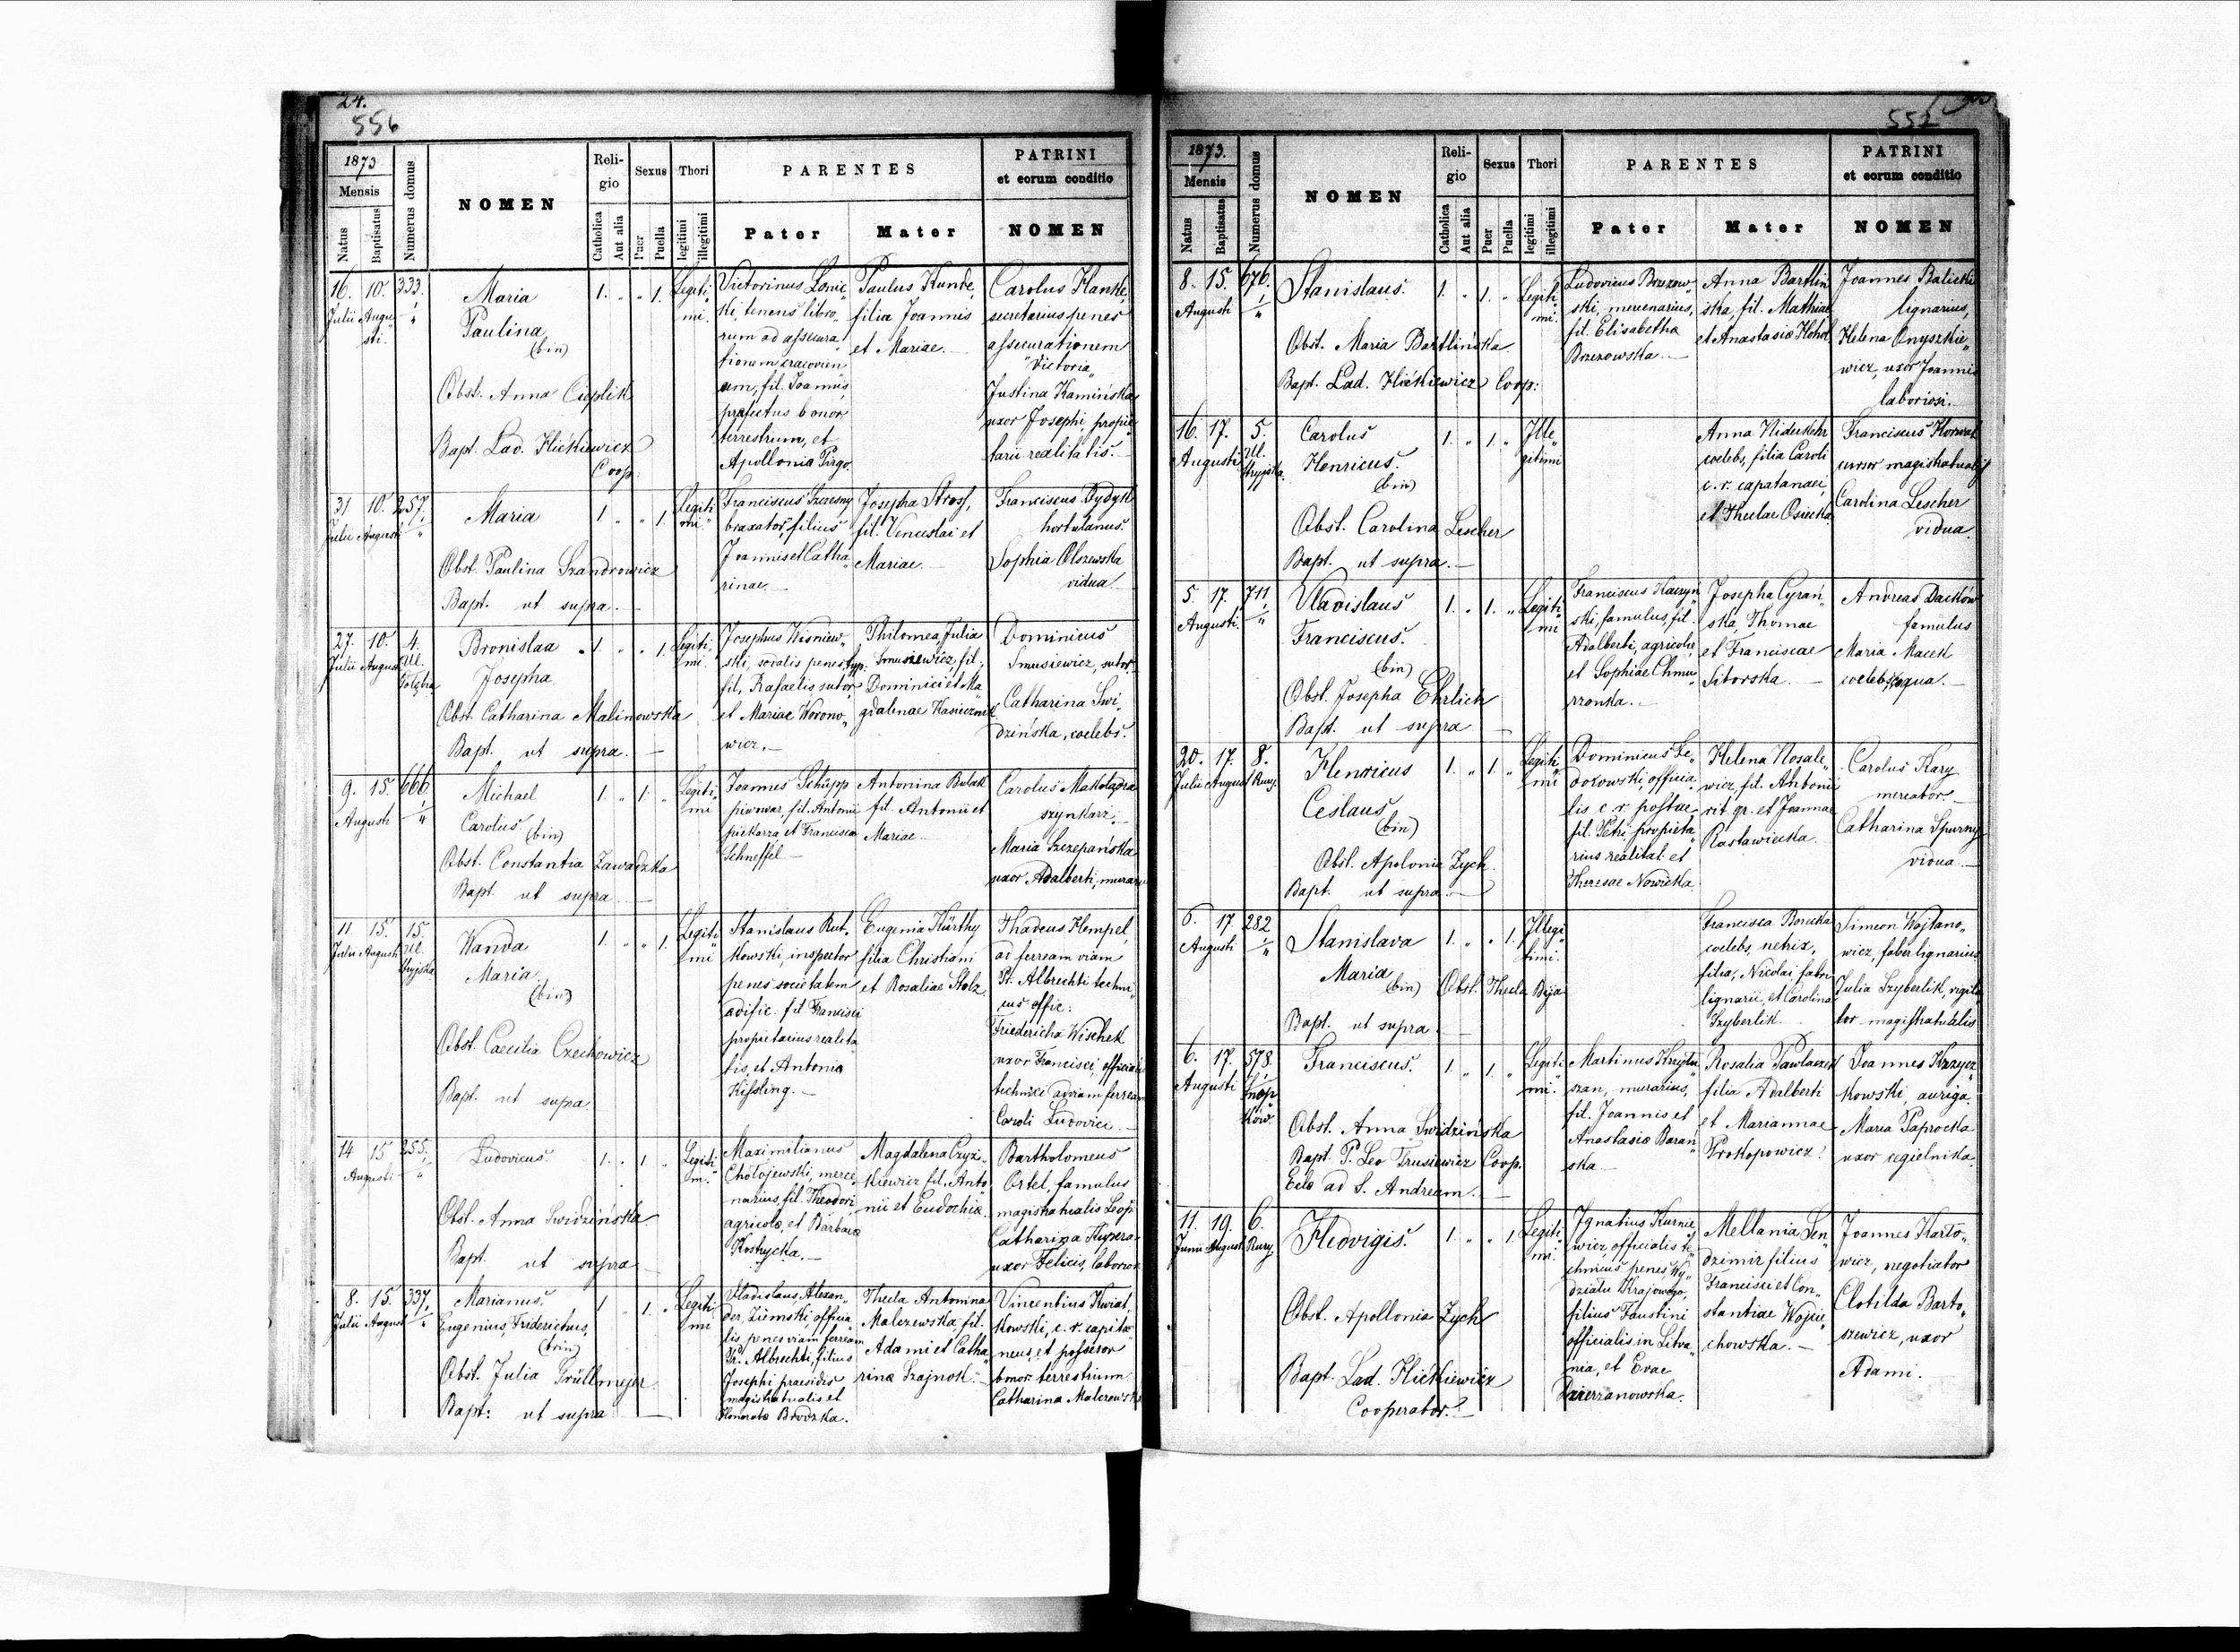 24.
556
1873
Mensis
Natus
Baptisatus
Numerus domus
NOMEN
Reli-
gio
Catholica
Aut alia
Sexus
Puer
Puella
Thori
legitimi
illegitimi
PARENTES
Pater
Mater
PATRINI
et eorum conditio
NOMEN
16. 10. 333.
Julii Augu
sti
Maria
Paulina
(bin)
Obst. Anna Cieplik
Bapt. Lad. Hickiewicz
Coop.
1. " " 1.
Legiti
mi.
Victorinus
ki, tenens libro
rum ad assecura
tionem cracovien
sem, fil. Joannis,
praefectus bonor
terrestrium, et
Apollonia Pirgo.
Paulus Kunde,
filia Joannis
et Mariae.
Carolus Hanke,
secretarius penes
assecurationem
"Victoria"
Justina Kamińska
uxor Josephi, proprie
tarii realitatis.
31 10. 257.
Julii Augusti
Maria
Obst. Paulina Szandrowicz
Bapt. ut supra.
1 " " 1
Legiti
mi.
Franciscus Szczesny
braxator, filius
Joannis et Catha
rinae.
Josepha Stross,
fil. Venceslai et
Mariae.
Franciscus Dydyk
hortulanus.
Sophia Olszewska
vidua.
27. 10. 4.
Julii Augusti Ul.
Bronislaa
Josepha
Obst. Catharina Malinowska
Bapt. ut supra.
1. " " 1.
Legiti
mi.
Josephus Wisniew
ski, sodalis penes typ.
fil. Rafaelis sutor
et Mariae Worono
wicz.
Philomea, Julia
Smusiewicz, fil.
Dominici et Ma
gdalenae
Dominicus
Smusiewicz, sutor.
Catharina Swi
dzińska, coelebs.
9. 15. 666.
Augusti
Michael
Carolus (bin)
Obst. Constantia Zawadzka
Bapt. ut supra
1. " 1. "
Legiti
mi
Joannes Schupp
piwowar, fil. Antonii
piekarza et Francisca
Schneffel
Antonina Bulak
fil. Antonii et
Mariae
Carolus
szynkarz.
Maria Szczepańska
uxor Adalberti,
11 15. 15.
Julii Augusti Ul.
Stryjska
Wanda
Maria
(bin)
Obst. Caecilia Czechowicz
Bapt. ut supra
1. " " 1.
Legiti
mi
Stanislaus Rut
kowski, inspector
penes societatem
aedific. fil Francisci
proprietarius realita
tis, et Antonia
Kissling.
Eugenia Kürthy
filia Christiani
et Rosaliae Stolz.
Thadeus Hempel,
ad ferream viam
St. Albrechti techni
cus offic:
Friedericha Wischek
uxor Francisci, officialis
technici ad viam ferream
Caroli Ludovici
14 15 255.
Augusti
Ludovicus.
Obst. Anna Swidzińska
Bapt. ut supra
1. " 1 "
Legiti
m.
Maximilianus
Chołojewski, merce
narius, fil. Theodori
agricolae, et Barbara
Kostycka.
Magdalena Czyz
kiewicz fil. Anto
nii et Eudochia.
Bartholomeus
Ortel, famulus
magistratualis Leop
Catharina
uxor Felicis,
8. 15. 337.
Julii Augusti
Marianus,
Eugenius, Fridericus,
(trin)
Obst. Julia Grüllmejer
Bapt: ut supra
1 " 1. "
Legiti
mi
Vladislaus, Alexan
der, Ziemski, officia
lis penes viam ferream
St. Albrechti, filius
Josephi praesidis
magistratualis et
Honorata Brodzka.
Thecla Antonina
Malczewska, fil.
Adami et Catha
rina Szajnok.
Vincentius Kwiat
kowski, c. r. capita
neus, et possesor
bonor. terrestrium
Catharina
552
1873.
Mensis
Natus
Baptisatus
Numerus domus
NOMEN
Reli-
gio
Catholica
Aut alia
Sexus
Puer
Puella
Thori
legitimi
illegitimi
PARENTES
Pater
Mater
PATRINI
et eorum conditio
NOMEN
8. 15. 676.
Augusti
Stanislaus.
Obst. Maria Bartlińska.
Bapt. Lad. Hickiewicz Coop:
1. " 1. "
Legiti
mi.
Ludovicus Brzezow
ski, mercenarius,
fil. Elisabetha
Brzezowska.
Anna Bartlin
ska, fil. Mathiae
et Anastasia
Joannes Balicki
lignarius,
Helena Onyszkie
wicz, uxor Joannis
laboriosi.
16. 17. 5.
Augusti Ul.
Stryjska
Carolus
Henricus.
(bin)
Obst. Carolina Lescher
Bapt. ut supra.
1. " 1. "
Ille
gitimi
Anna Niderkehr
coelebs, filia Caroli
c. r. capatanaei,
et Theclae Osiecka
Franciscus
cursor magistratualis
Carolina Lescher
vidua.
5. 17. 711
Augusti.
Vladislaus
Franciscus.
(bin)
Obst. Josepha Ehrlich
Bapt. ut supra
1. " 1. "
Legiti
mi
Franciscus Kaczyń
ski, famulus, fil.
Adalberti, agricolae,
et Sophiae Chmu
rzonka.
Josepha Cyrań
ska Thomae
et Franciscae
Sitorska.
Andreas Dacków
famulus
Maria Macek
coelebs,
20. 17. 8.
Julii Augusti Rury
Henricus
Ceslaus
(bin)
Obst. Apolonia Zych.
Bapt. ut supra
1. " 1. "
Legiti
mi
Dominicus Fe
dorowski, officia
lis c. r. postae,
fil. Petri proprieta
rius realitat. et
Theresae Nowicka.
Helena Nosale
wicz, fil. Antonii
rit. gr. et Joannae
Rastawiecka.
Carolus Kary
mercator.
Catharina Spurny
vidua.
6. 17 282
Augusti
Stanislava
Maria
(bin) Obst. Thecla Bija
Bapt. ut supra
1. " " 1.
Illegi
timi.
Francisca Borecka
coelebs, netrix,
filia, Nicolai fabri
lignarii, et Carolina
Szyberlik.
Simeon Wojtano
wicz, faber lignarius
Julia Szyberlik, vigila
tor magistratualis
6. 17. 578.
Augusti
Franciscus.
Obst. Anna Swidzińska
Bapt. P. Leo Trusiewicz Coop.
Eclae ad S. Andream.
1 " 1. "
Legiti
mi.
Martinus
szan, murarius,
fil. Joannis et
Anastasia Baran
ska.
Rosalia Pawlaczek
filia Adalberti
et Mariannae
Prokopowicz.
Joannes Krzycz
kowski, auriga.
Maria Paprocka
uxor cegielnika.
11. 19. 6.
Junii Augusti Rury
Hedvigis.
Obst. Apollonia Zych
Bapt. Lad. Hickiewicz
Cooperator.
1. " " 1
Legiti
mi.
Ignatius Kurnie
wicz, officialis te
chnicus penes Wy
działu Krajowego,
filius Faustini
officialis in Litva
nia, et Evae
Mellania Sen
dzimir filius
Francisci et Con
stantiae Wojcie
chowska.
Joannes Karto
wicz, negotiator
Clotilda Barto
szewicz, uxor
Adami.